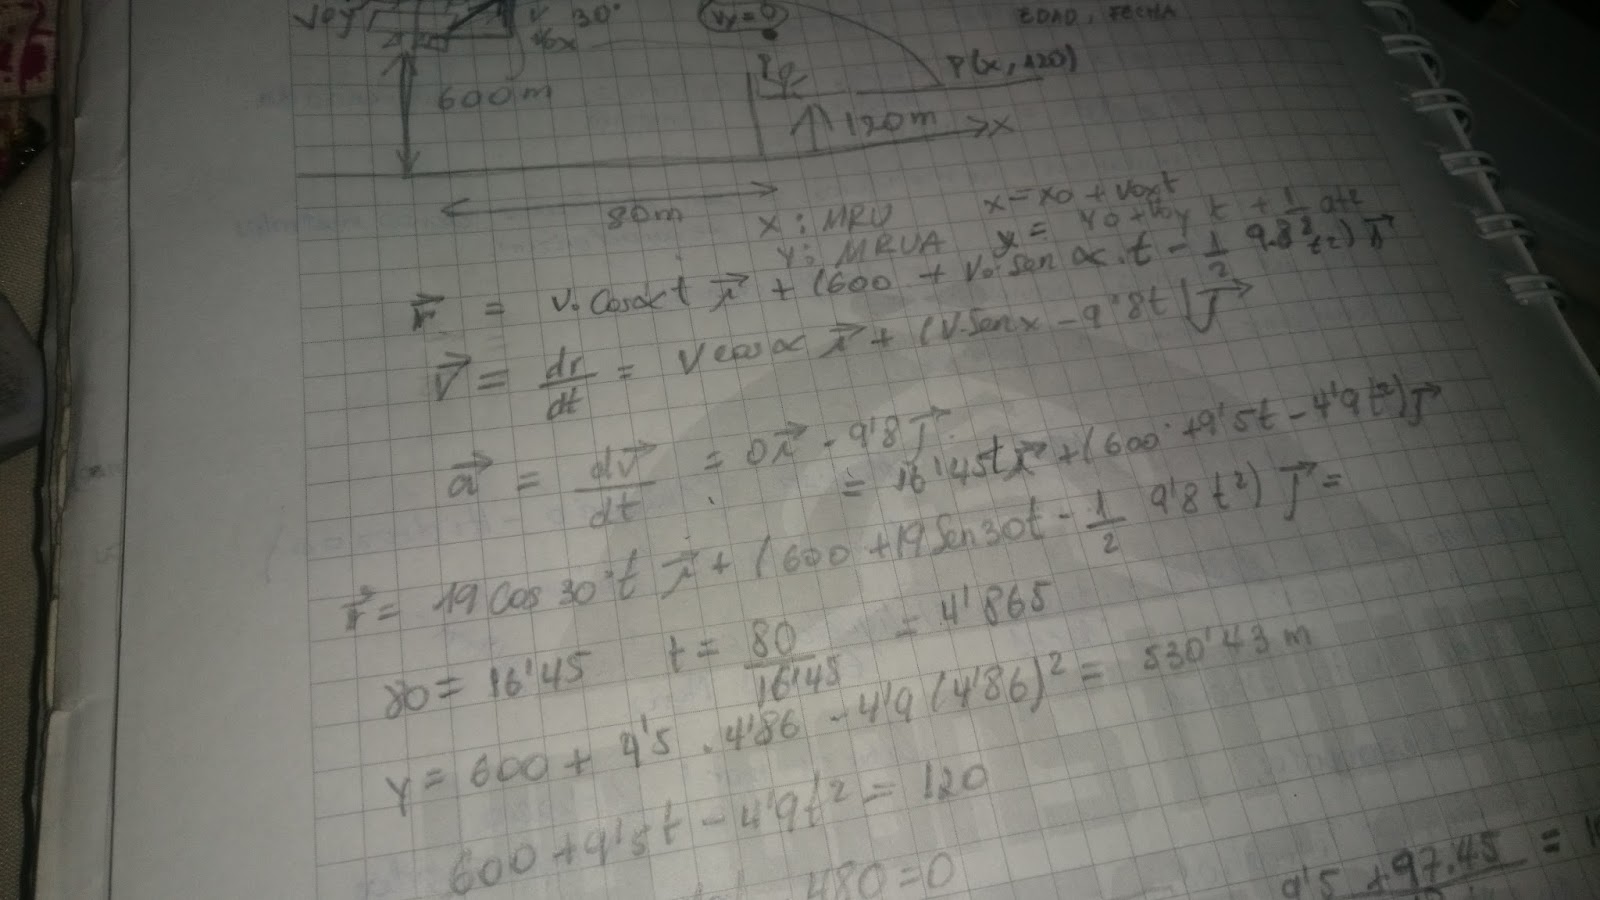 Voy 30° Vy=0 EDAD, FECHA
Vox
600m P(x,120)
120m x
80m
x: MRU x = x0 + voxt
y: MRUA y = y0 + voy t + 1/2 at²
r⃗ = V. cosα t i⃗ + (600 + V. Sen α.t - 1/2 9.8 t²) j⃗
V⃗ = dr/dt = V cosα i⃗ + (V.Senx - 9'8t) j⃗
a⃗ = dv⃗/dt = 0i⃗ - 9'8 j⃗
= 16'45t i⃗ + (600 + 9'5t - 4'9t²) j⃗
r⃗ = 19 Cos 30·t i⃗ + (600 + 19 Sen30t - 1/2 9'8 t²) j⃗ =
80 = 16'45 t = 80/16'45 = 4'865
y = 600 + 9'5 . 4'86 - 4'9 (4'86)² = 530'43 m
600 + 9'5t - 4'9t² = 120
480 = 0
9'5 + 97.45 =